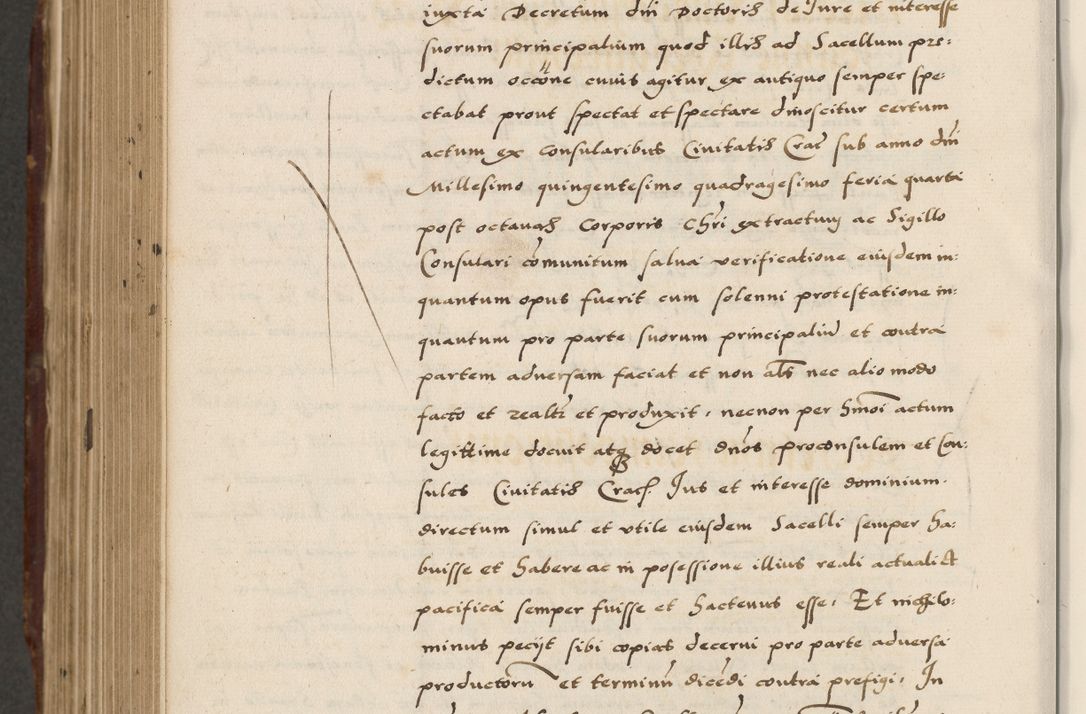 iuxta Decretum dni Doctoris de Iure et interesse
suorum principalium quod illis ad Sacellum pre:
dictum occone cuius agitur ex antiquo semper spe:
ctabat prout spectat et spectare dinoscitur certum
actum ex Consularibus Civitatis Crac sub anno dni
Millesimo quingentesimo quadragesimo feria quarta
post octavas Corporis Chri extractum ac Sigillo
Consulari comunitum salva verificatione eiusdem in:
quantum opus fuerit cum solenni protestatione in:
quantum pro parte suorum principaliu et contra
partem adversam faciat et non als nec alio modo
facto et realtr et produxit, necnon per hmoi actum
legittime docuit atq docet dnos proconsulem et Con:
sules Civitatis Crac. Ius et interesse dominium
directum simul et utile eiusdem Sacelli semper ha:
buisse et habere ac in posessione illius reali actuali et
pacifica semper fuisse et hactenus esse, Et nichilo:
minus petijt sibi copias decerni pro parte adversa
productoru et terminu dicedi contra prefigi, In